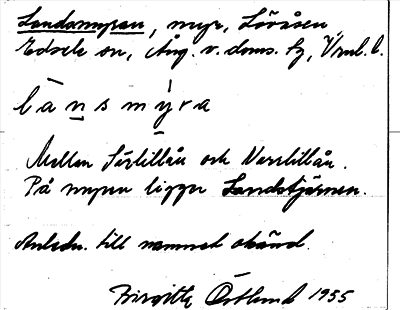 Landamyran, myr, Lövåsen,
Edsele sn, Ång. v. doms. hg, Vrnl. l.
lānsmýra
Mellan Sörlillån och Västlillån.
På myren ligger Landstjärnen.
Anledn. till namnet okänd.
Birgitta Östlund 1955